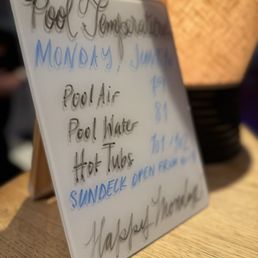 Pool Temperatures
MONDAY, June
Pool Air
Pool Water 81
Hot Tubs 101/102
SUNDECK OPEN FROM
Happy Monday